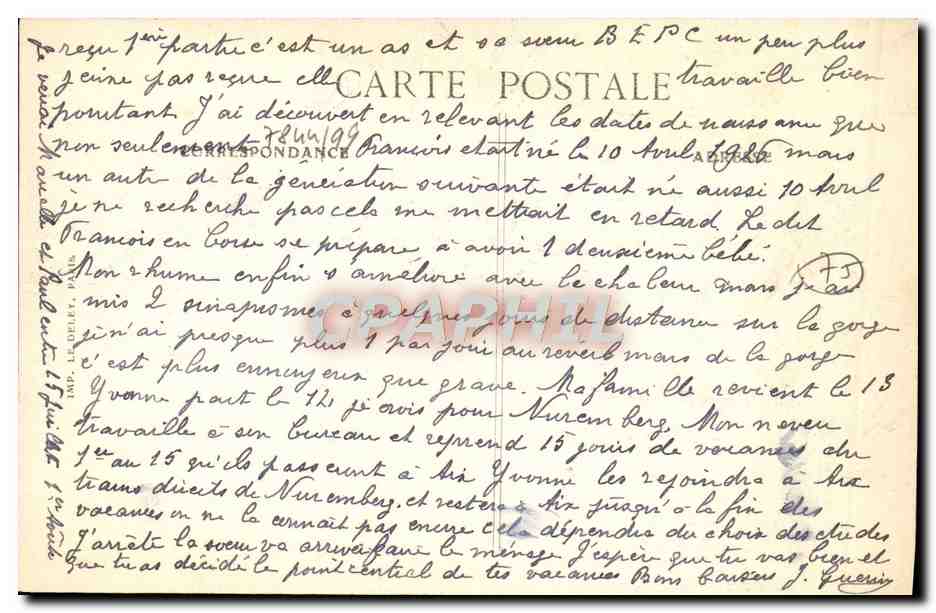 reçu 1ère partie c'est un as et sa sœur B E P C un peu plus
jeune pas reçue elle travaille bien
CARTE POSTALE
pourtant. J'ai découvert en relevant les dates de naissance que
7844/99
non seulement François etait né le 10 Avril 1986 mais
CORRESPONDANCE
ADRESSE
un autre de la génération suivante était né aussi 10 Avril
je ne recherche pas cela me mettrait en retard. Le dit
François en Corse se prépare à avoir 1 deuxième bébé.
Mon rhume enfin s'améliore avec la chaleur mais j'ai
75
mis 2 sinapismes à quelques jours de distance sur la gorge
je n'ai presque plus 1 par jour au réveil mais de la gorge
c'est plus ennuyeux que grave. Ma famille revient le 13
Yvonne part le 12, je crois pour Nuremberg. Mon neveu
travaille à son bureau et reprend 15 jours de vacances du
1er au 15 qu'ils passeront à Aix Yvonne les rejoindra à Aix
trains directs de Nuremberg et restera à Aix jusqu'à la fin des
vacances on ne la connaît pas encore cela dépendra du choix des études
J'arrête la sœur va arriver faire le ménage J'espère que tu vas bien et
que tu as décidé le point central de tes vacances Bons baisers J. Guerin
Je verrai et Paul entre 15 Juillet 1er Août
IMP. LE DELEY, PARIS
CPAPHIL